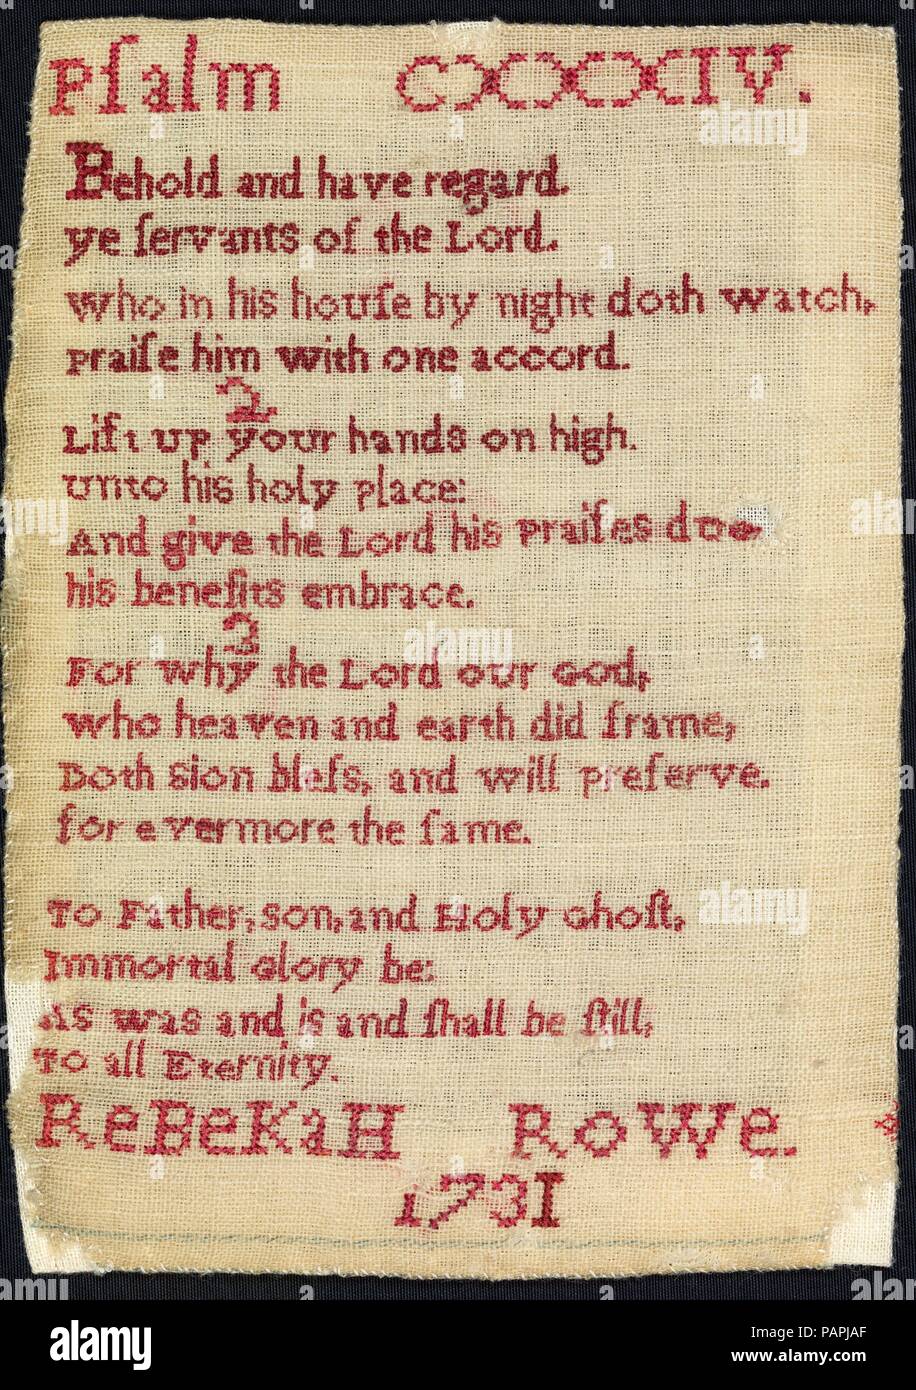 Pſalm CXXXIV.
Behold and have regard.
ye ſervants of the Lord.
Who in his houſe by night doth watch,
Praiſe him with one accord.
2
Lift up your hands on high.
Unto his holy place:
And give the Lord his Praiſes due
his benefits embrace.
3
For why the Lord our God,
Who heaven and earth did frame,
Doth Sion bleſs, and will preſerve.
for evermore the ſame.
To Father, Son, and Holy Ghoſt,
Immortal Glory be:
As was and is and ſhall be ſtill,
To all Eternity.
ReBeKaH RoWe.
1731
alamy
alamy
alamy
alamy
alamy
alamy
Image ID: PAPJAF
www.alamy.com